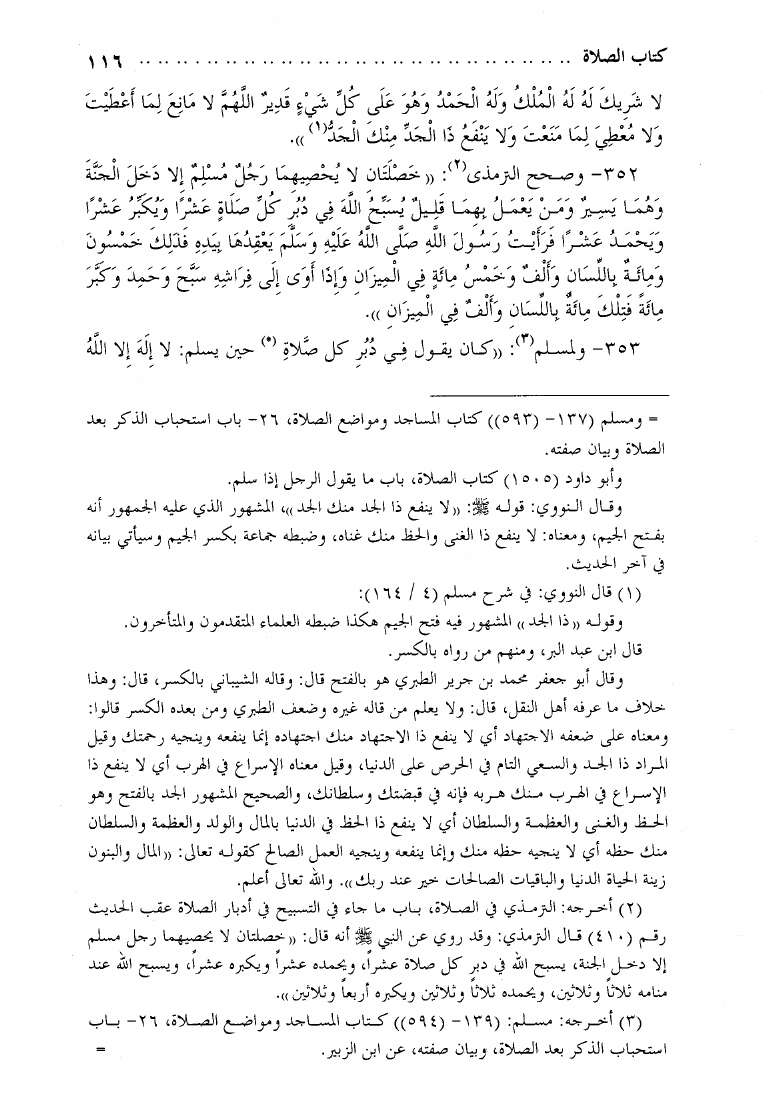 كتاب الصلاة .......................................................... ١١٦
لا شَرِيكَ لَهُ لَهُ الْمُلْكُ وَلَهُ الْحَمْدُ وَهُوَ عَلَى كُلِّ شَيْءٍ قَدِيرٌ اللَّهُمَّ لا مَانِعَ لِمَا أَعْطَيْتَ
وَلا مُعْطِيَ لِمَا مَنَعْتَ وَلا يَنْفَعُ ذَا الْجَدِّ مِنْكَ الْجَدُّ(١)».
٣٥٢- وصحح الترمذى(٢): «خَصْلَتَان لا يُحْصِيهِمَا رَجُلٌ مُسْلِمٌ إِلا دَخَلَ الْجَنَّةَ
وَهُمَا يَسِيرٌ وَمَنْ يَعْمَلُ بِهِمَا قَلِيلٌ يُسَبِّحُ اللَّهَ فِي دُبُرِ كُلِّ صَلَاةٍ عَشْرًا وَيُكَبِّرُ عَشْرًا
وَيَحْمَدُ عَشْرًا فَرَأَيْتُ رَسُولَ اللَّهِ صَلَّى اللَّهُ عَلَيْهِ وَسَلَّمَ يَعْقِدُهَا بِيَدِهِ فَذَلِكَ خَمْسُونَ
وَمِائَةٌ بِاللِّسَانِ وَأَلْفٌ وَخَمْسُ مِائَةٍ فِي الْمِيزَانِ وَإِذَا أَوَى إِلَى فِرَاشِهِ سَبَّحَ وَحَمِدَ وَكَبَّرَ
مِائَةً فَتِلْكَ مِائَةٌ بِاللِّسَانِ وَأَلْفٌ فِي الْمِيزَانِ».
٣٥٣- ولمسلم(٣): «كان يقول فِي دُبُرِ كل صَّلاةٍ (*) حين يسلم: لا إِلَهَ إِلا اللَّهُ
= ومسلم (١٣٧- (٥٩٣)) كتاب المساجد ومواضع الصلاة، ٢٦- باب استحباب الذكر بعد
الصلاة وبيان صفته.
وأبو داود (١٥٠٥) كتاب الصلاة، باب ما يقول الرجل إذا سلم.
وقال النووي: قوله ﷺ: «لا ينفع ذا الجد منك الجد»، المشهور الذي عليه الجمهور أنه
بفتح الجيم، ومعناه: لا ينفع ذا الغنى والحظ منك غناه، وضبطه جماعة بكسر الجيم وسيأتي بيانه
في آخر الحديث.
(١) قال النووي: في شرح مسلم (٤ / ١٦٤):
وقوله «ذا الجد» المشهور فيه فتح الجيم هكذا ضبطه العلماء المتقدمون والمتأخرون.
قال ابن عبد البر، ومنهم من رواه بالكسر.
وقال أبو جعفر محمد بن جرير الطبري هو بالفتح قال: وقاله الشيباني بالكسر، قال: وهذا
خلاف ما عرفه أهل النقل، قال: ولا يعلم من قاله غيره وضعف الطبري ومن بعده الكسر قالوا:
ومعناه على ضعفه الاجتهاد أي لا ينفع ذا الاجتهاد منك اجتهاده إنما ينفعه وينجيه رحمتك وقيل
المراد ذا الجد والسعي التام في الحرص على الدنيا، وقيل معناه الإسراع في الهرب أي لا ينفع ذا
الإسراع في الهرب منك هربه فإنه في قبضتك وسلطانك، والصحيح المشهور الجد بالفتح وهو
الحظ والغنى والعظمة والسلطان أي لا ينفع ذا الحظ في الدنيا بالمال والولد والعظمة والسلطان
منك حظه أي لا ينجيه حظه منك وإنما ينفعه وينجيه العمل الصالح كقوله تعالى: «المال والبنون
زينة الحياة الدنيا والباقيات الصالحات خير عند ربك». والله تعالى أعلم.
(٢) أخرجه: الترمذي في الصلاة، باب ما جاء في التسبيح في أدبار الصلاة عقب الحديث
رقم (٤١٠) قال الترمذي: وقد روي عن النبي ﷺ أنه قال: «خصلتان لا يحصيهما رجل مسلم
إلا دخل الجنة، يسبح الله في دبر كل صلاة عشراً، ويحمده عشراً ويكبره عشراً، ويسبح الله عند
منامه ثلاثاً وثلاثين، ويحمده ثلاثاً وثلاثين ويكبره أربعاً وثلاثين».
(٣) أخرجه: مسلم: (١٣٩- (٥٩٤)) كتاب المساجد ومواضع الصلاة، ٢٦- باب
استحباب الذكر بعد الصلاة، وبيان صفته، عن ابن الزبير. =